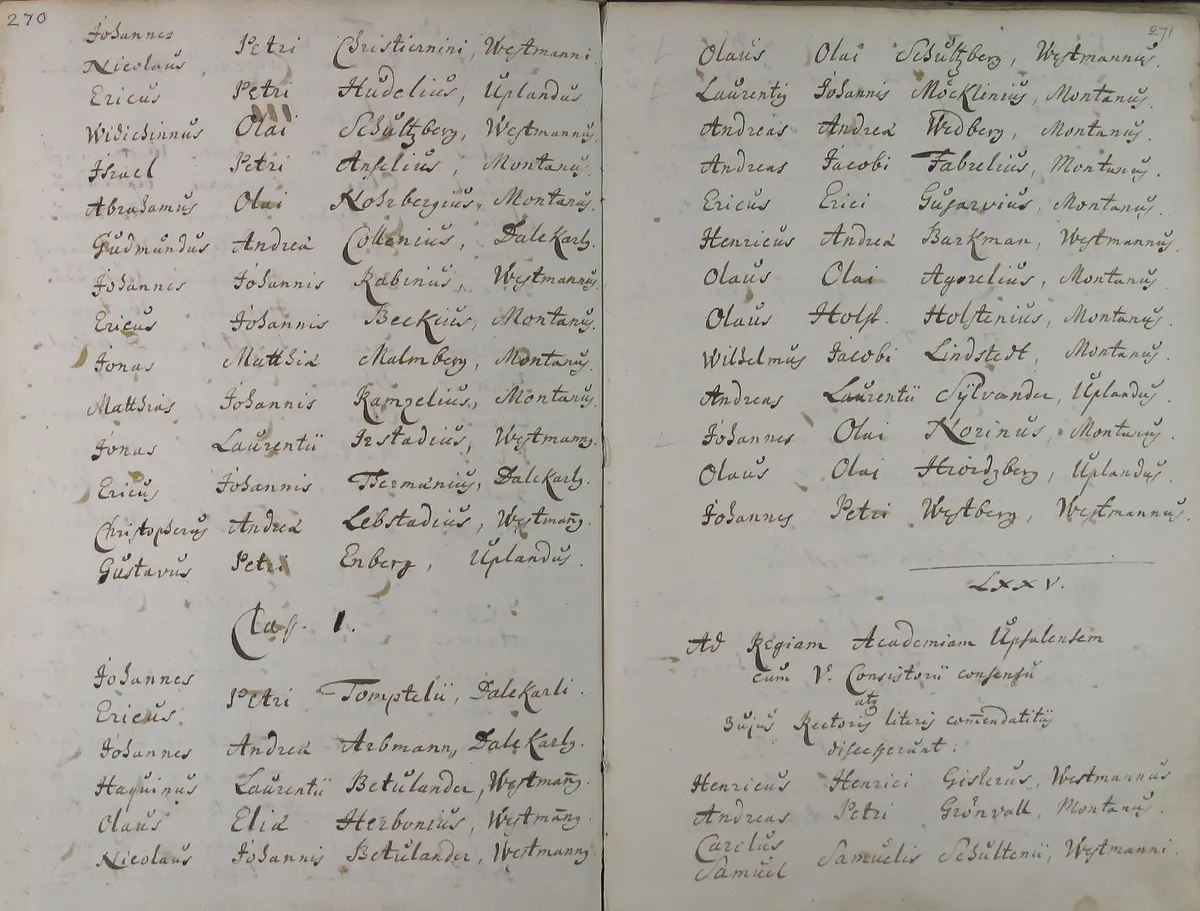 270
Johannes
Nicolaus Petri Christiernini, Westmanni.
Ericus Petri Hudelius, Uplandus
Widichinnus Olai Schultzberg, Westmannus.
Israel Petri Anselius, Montanus.
Abrahamus Olai Nohrbergius, Montanus.
Gudmundus Andreæ Collenius, Dalekarlg.
Johannes Johannis Rabenius, Westmannus.
Ericus Johannis Beckius, Montanus.
Jonas Matthiæ Malmberg, Montanus.
Matthias Johannis Kampelius, Montanus.
Jonas Laurentii Irstadius, Westmanng.
Ericus Johannis Thermænius, Dalekarlg.
Christopherus Andreæ Lebstadius, Westmang.
Gustavus Petri Enberg, Uplandus.
Class. 1.
Johannes
Ericus Petri Tomptelii, Dalekarli.
Johannes Andreæ Arbmann, Dalekarlg.
Haquinus Laurentii Betulander, Westmang.
Olaus Eliæ Herbonius, Westmang.
Nicolaus Johannis Betulander, Westmanng
271
Olaus Olai Schultzberg, Westmannus.
Laurentij Johannis Mocklinius, Montanus.
Andreas Andreæ Wedberg, Montanus.
Andreas Jacobi Fabrelius, Montanus.
Ericus Erici Gusarvius, Montanus.
Henricus Andreæ Barkman, Westmannus.
Olaus Olai Agorelius, Montanus.
Olaus Holst. Holstenius, Montanus.
Wilhelmus Jacobi Lindstedt, Montanus.
Andreas Laurentii Sylvander, Uplandus.
Johannes Olai Norinus, Montanus.
Olaus Olai Uplandus.
Johannes Petri Westberg, Westmannus.
LXXV.
Ad Regiam Academiam Upsalensem
cum V. Consistorii consensu
atq
hujus Rectoris literis comendatitiis
discesserunt:
Henricus Henrici Gislerus, Westmannus
Andreas Petri Grönvall, Montanus.
Carolus
Samuel Samuelis Schultenii, Westmanni.